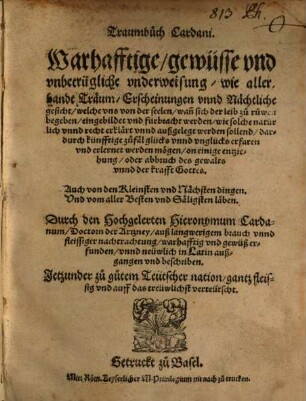 813 Ph.
Traumbůch Cardani.
Warhafftige/gewüsse vnd
vnbetrügliche vnderweisung/ wie aller-
handt Träum/ Erscheinungen vnnd Nächtliche
gesicht/ welche vns von der seelen/ wañ sich der leib zu růwen
begeben/ eingebildet vnd fürbracht werden: wie solche natür
lich vnnd recht erklärt vnnd außgelegt werden sollend/ dar-
durch künfftige zůfäl glücks vnnd vnglücks erfaren
vnd erlernet werden mögen/ on einige entzie-
hung/ oder abbruch des gewalts
vnnd der krafft Gottes.
Auch von den Kleinsten vnd Nächsten dingen.
Vnd vom aller Besten vnd Säligsten läben.
Durch den Hochgelerten Hieronymum Carda-
num/ Doctorn der Artzney/ auß langwerigem brauch vnnd
fleissiger nachtrachtung/ warhafftig vnd gewüß er-
funden/ vnnd neüwlich in Latin auß-
gangen vnd beschriben.
Jetzunder zů gůtem Teütscher nation/ gantz fleis-
sig vnd auff das treüwlichst verteütscht.
Getruckt zu Basel.
Mit Röm. Keyserlicher M. Priuilegium nit nach zu trucken.